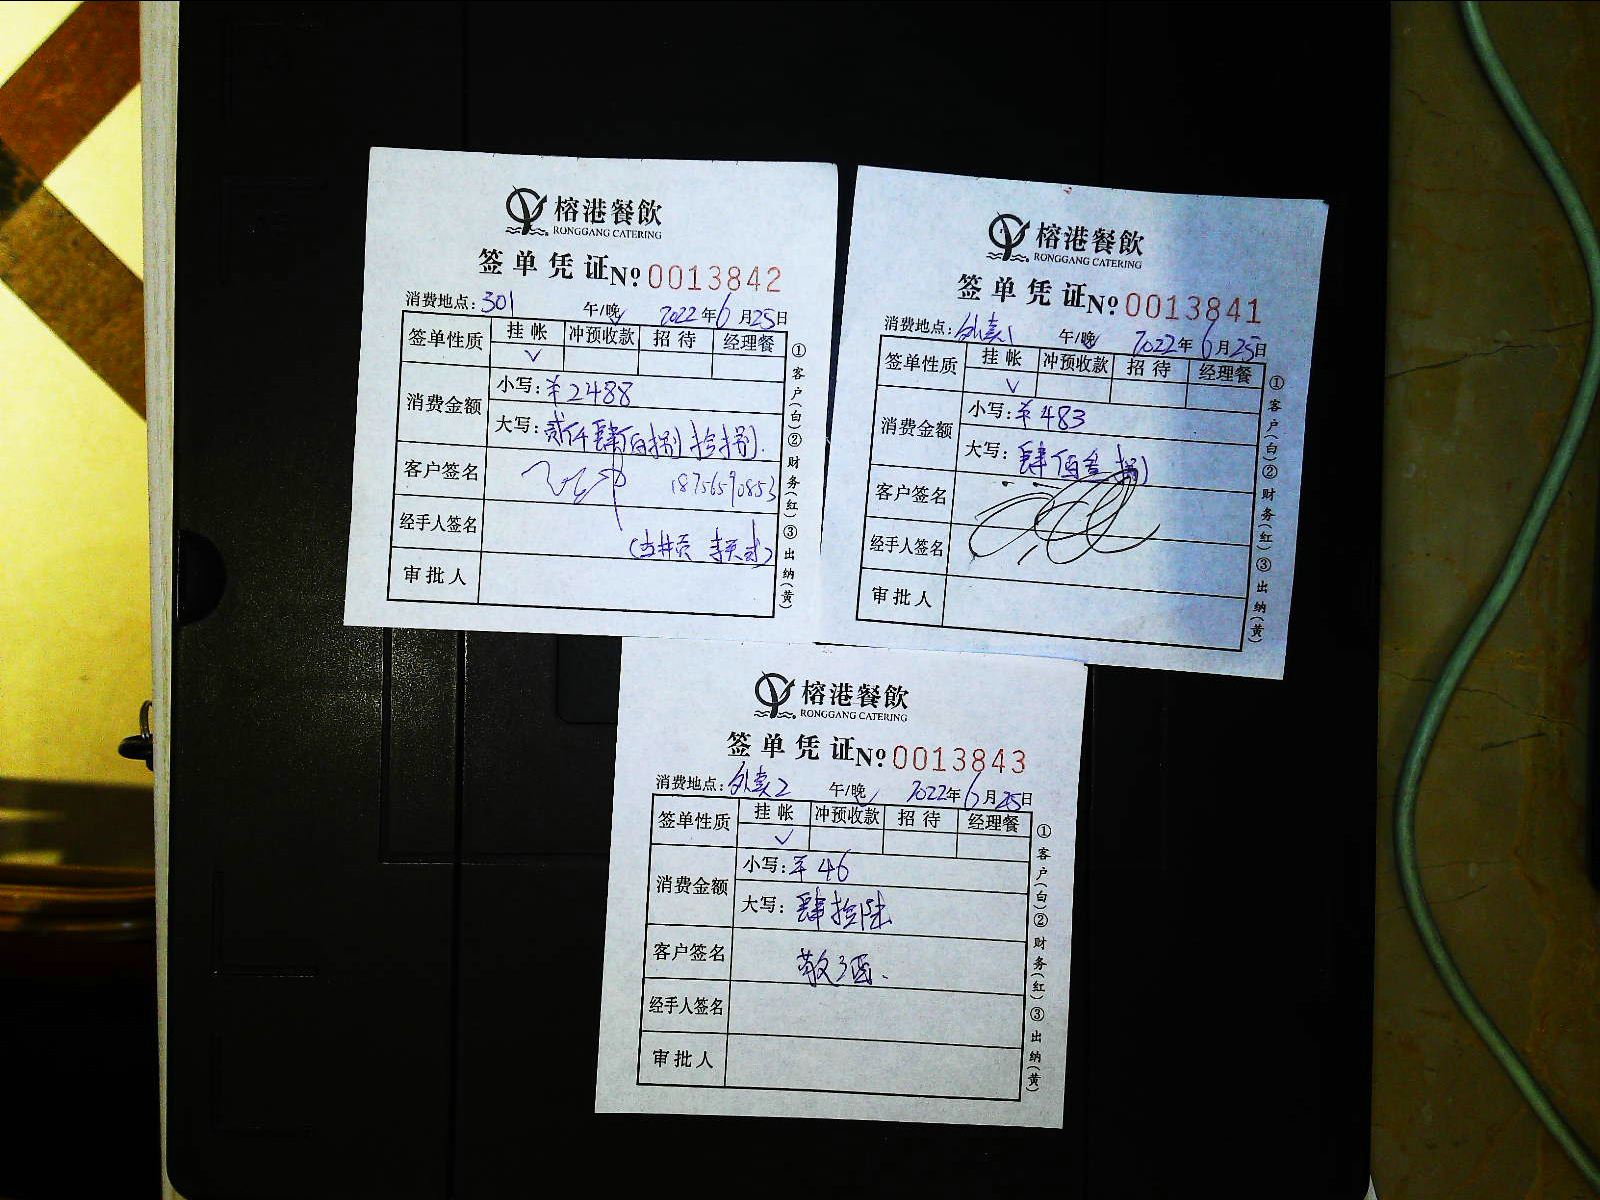 榕港餐飲
RONGGANG CATERING
签单凭证№0013842
消费地点：301 午/晚 2022年6月25日
签单性质 挂帐 冲预收款 招待 经理餐
✓
消费金额 小写：￥2488
大写：贰仟肆佰捌拾捌
客户签名 18756590853
经手人签名
审批人
①客户(白)②财务(红)③出纳(黄)
榕港餐飲
RONGGANG CATERING
签单凭证№0013841
消费地点：外卖1 午/晚 2022年6月25日
签单性质 挂帐 冲预收款 招待 经理餐
✓
消费金额 小写：￥483
大写：肆佰
客户签名
经手人签名
审批人
①客户(白)②财务(红)③出纳(黄)
榕港餐飲
RONGGANG CATERING
签单凭证№0013843
消费地点：外卖2 午/晚 2022年6月25日
签单性质 挂帐 冲预收款 招待 经理餐
✓
消费金额 小写：￥46
大写：肆拾陆
客户签名
经手人签名
审批人
①客户(白)②财务(红)③出纳(黄)